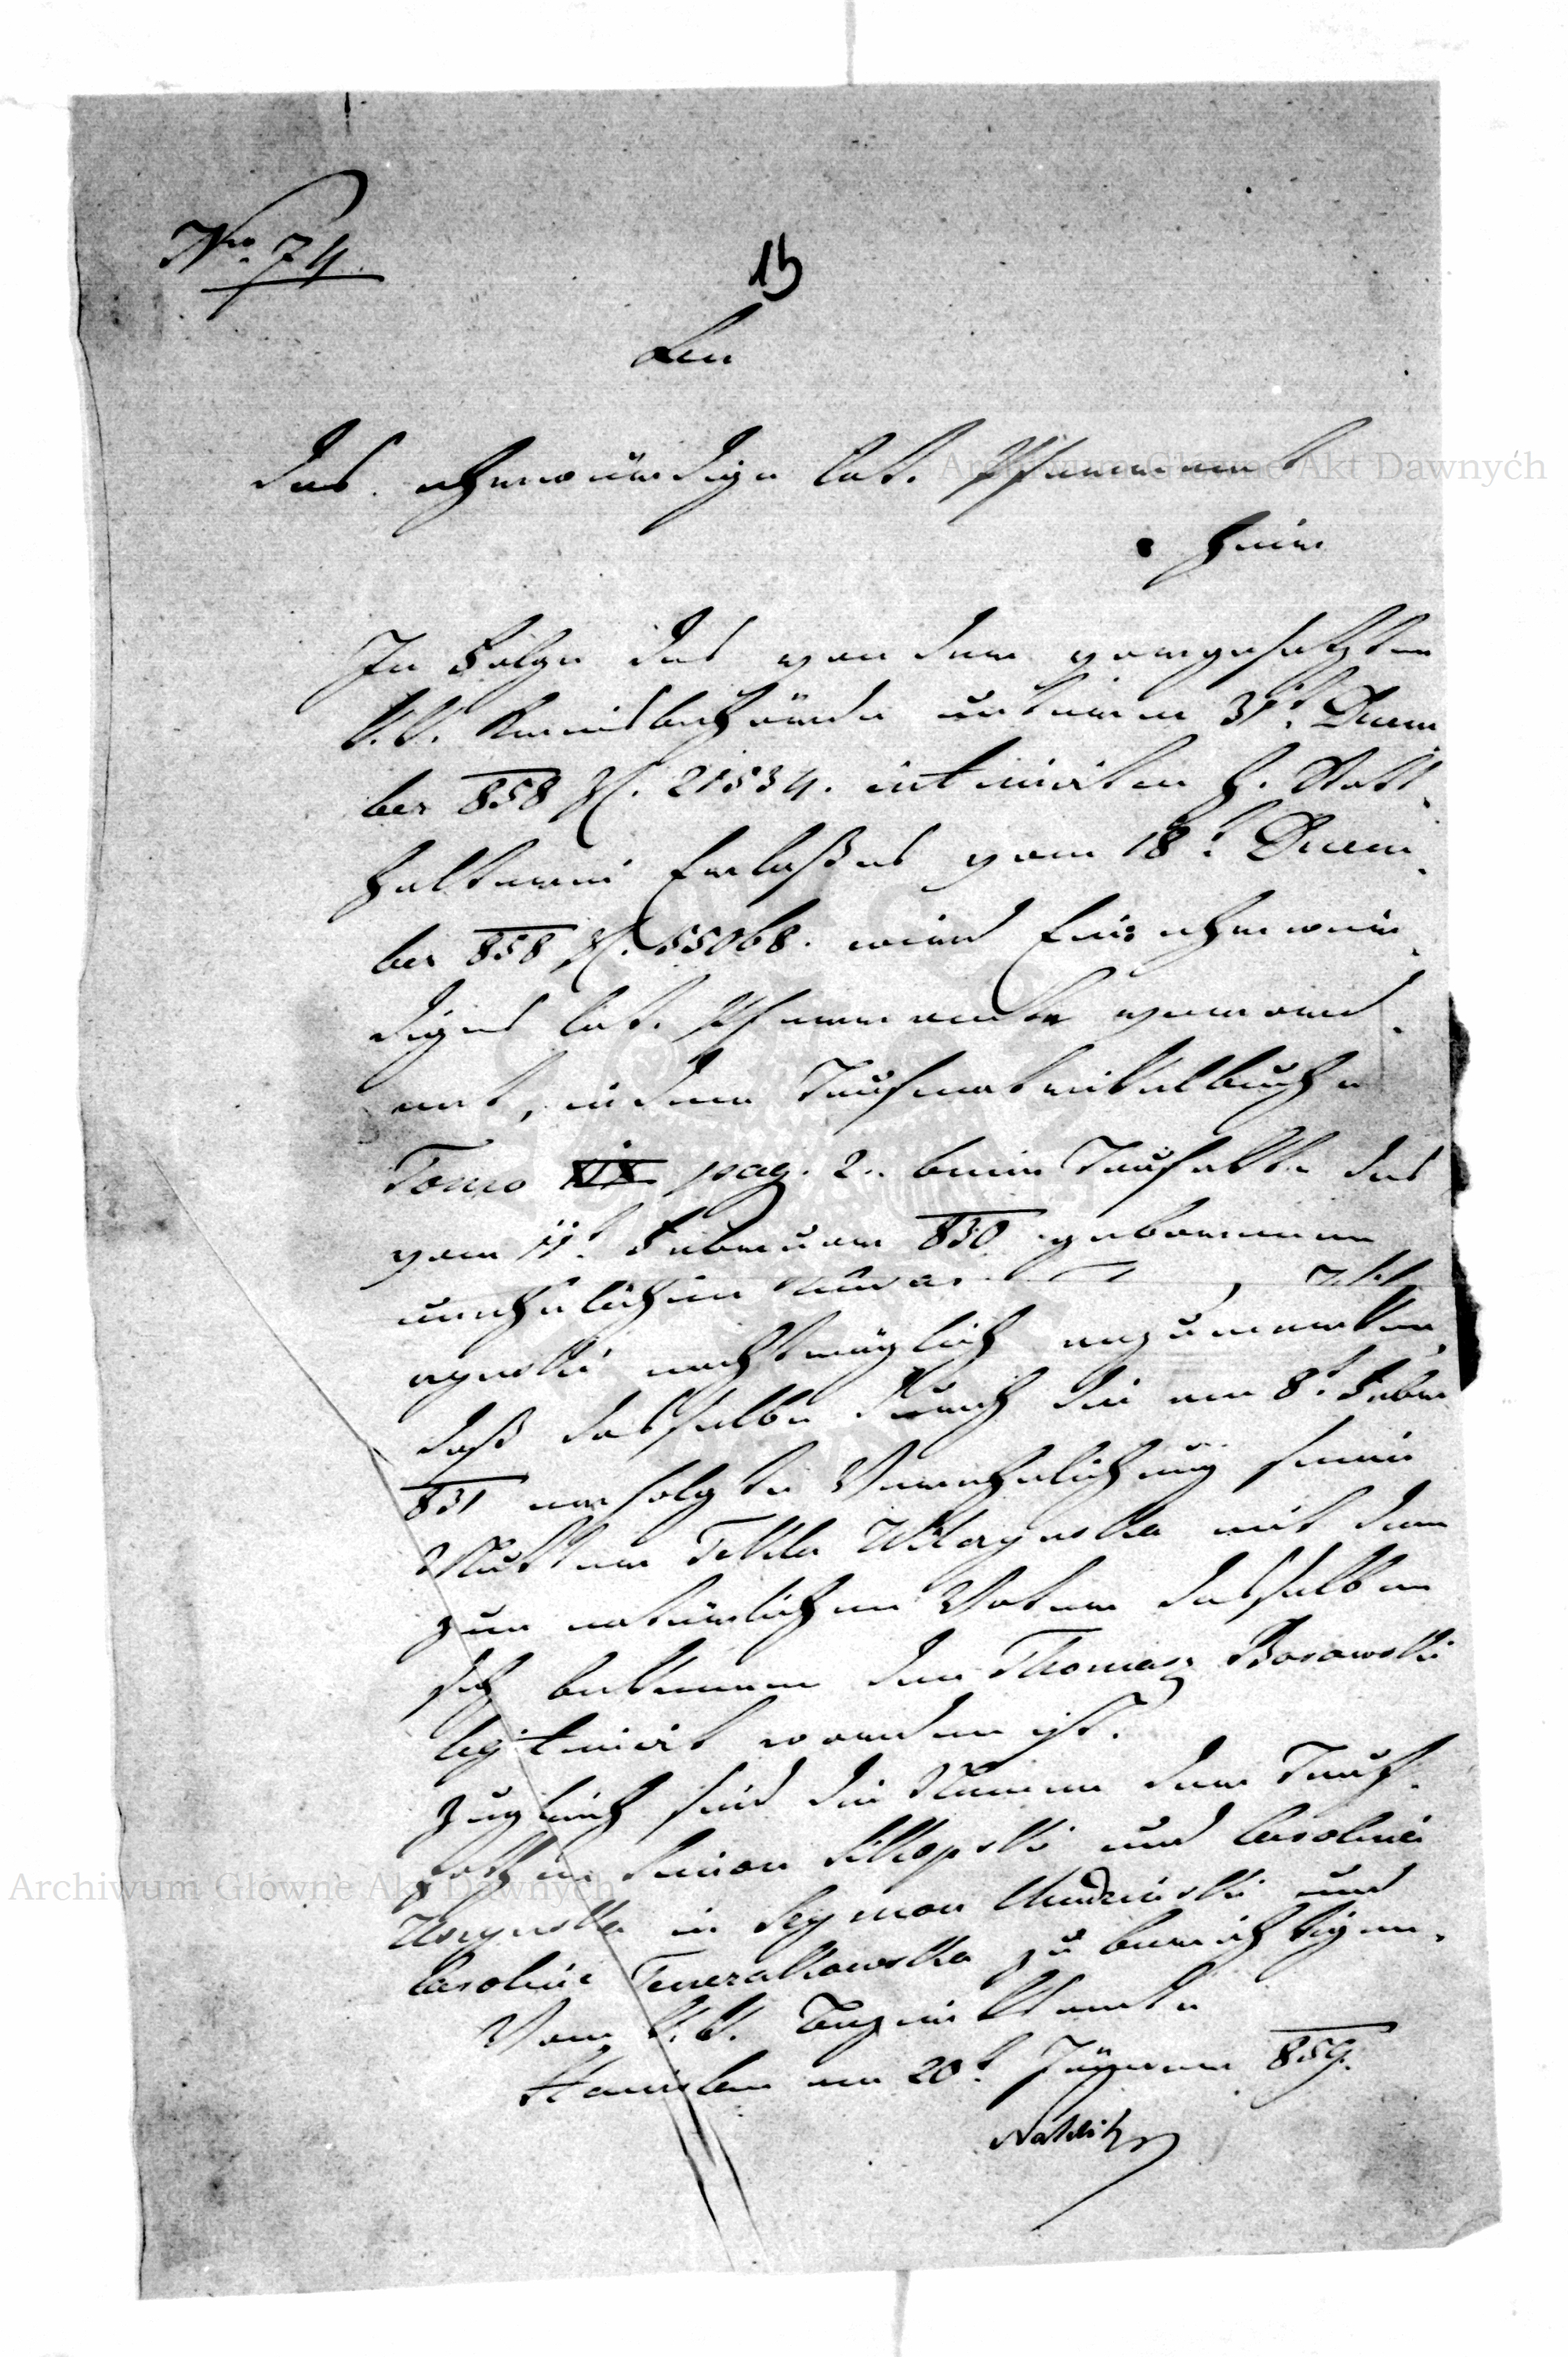 Nro 74.
15
An
das ehrwürdige lat. Pfarramt
hier
In Folge des von der vorgesetzten
k.k. Kreisbehörde unterm 31t Dezem
ber 858 Z. 21534. intimirten h. Statt
halterei Erlaßes vom 18t Dezem
ber 858 Z. 55068. wird Ein ehrwür
diges lat. Pfarramt verord
net, in dem Taufmatrikelbuche
Tomo XIX pag. 2. beim Taufakte des
vom 11t Februar 830 geborenen
unehelichen
nachträglich anzumerken,
daß dasselbe durch die am 8t Febr
831 erfolgte Verehelichung seiner
Mutter Tekla mit dem
zum natürlichen Vater desselben
sich bekennenden Thomasz Borowski
legitimirt worden ist.
Zugleich sind die Namen der Tauf
pathen Simon und Caroline
in Szymon und
Caroline zu berichtigen.
Vom k.k. Bezirksamte
Stanislau am 20t Jänner 859.